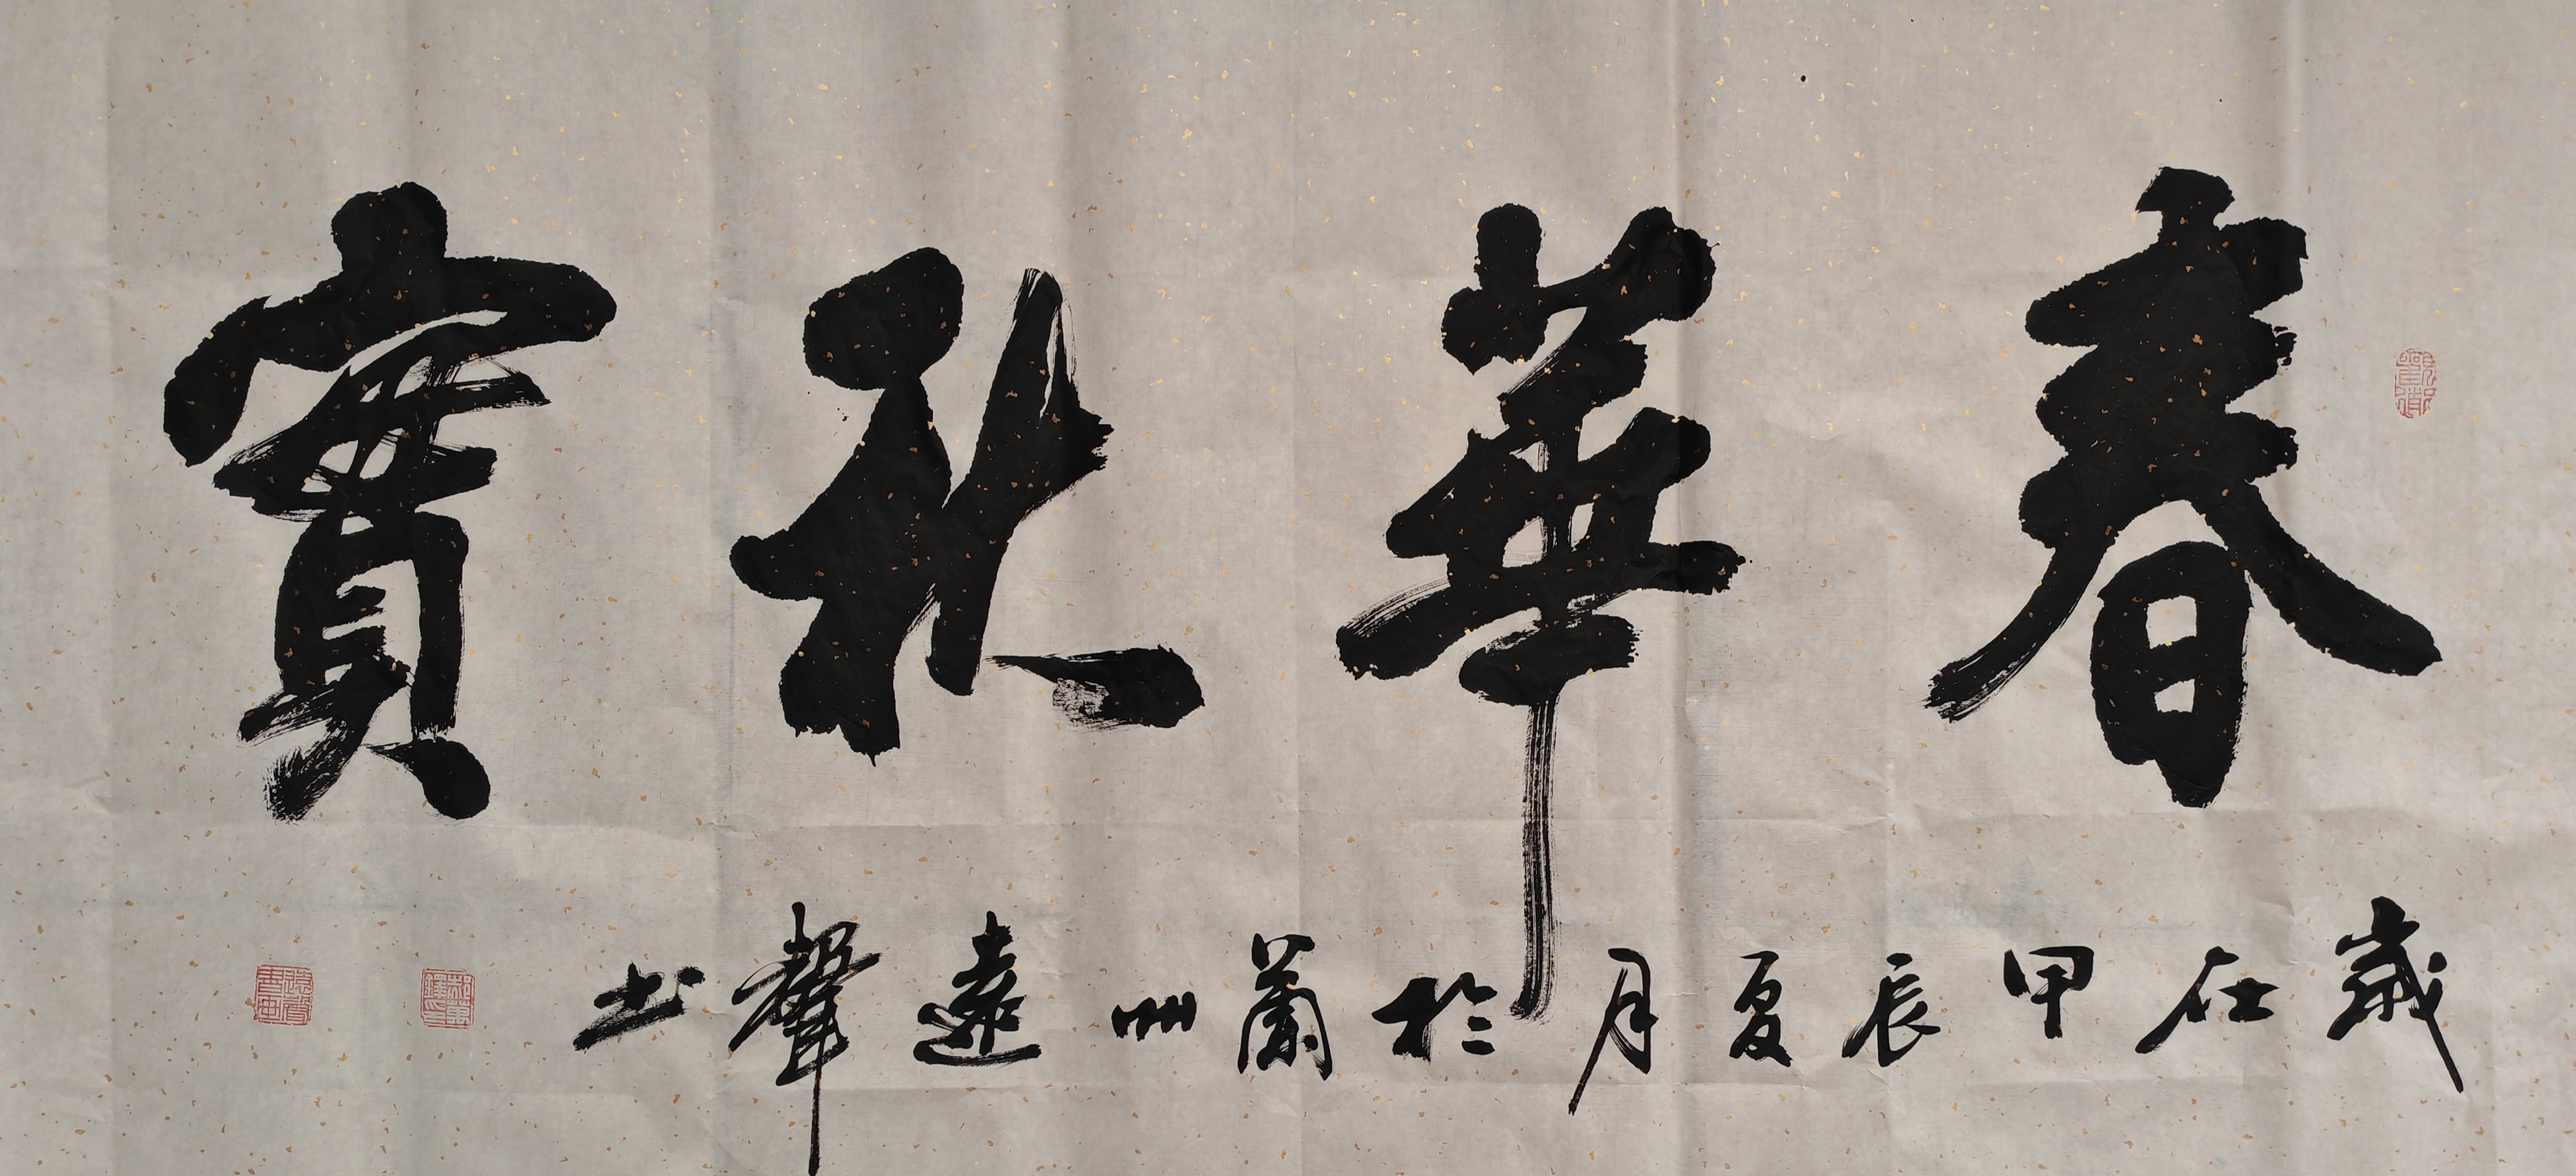 春華秋實
歲在甲辰夏月於蘭州遠聲书